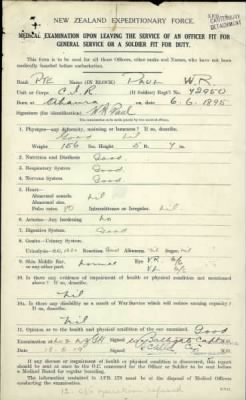 NEW ZEALAND EXPEDITIONARY FORCE.
MEDICAL EXAMINATION UPON LEAVING THE SERVICE OF AN OFFICER FIT FOR
GENERAL SERVICE OR A SOLDIER FIT FOR DUTY.
This form is to be used for all Officers, other ranks and Nurses, who have not been
medically boarded before embarkation.
Rank Pte Name (IN BLOCK) W.R.
Unit or Corps C.I.R (If Soldier) Regtl No 72950
Born at Ahaura on 6.6.1895
Signature (for identification)
1. Physique—any deformity, maiming or lameness? If so, describe.
Good nil
Weight 156 Height 5 ft. 7 in.
2. Nutrition and Dietetics Good
3. Respiratory System Good
4. Nervous System Good
5. Heart—
Abnormal sounds, nil
Abnormal size, nil
Pulse rates 80 Intermittence or Irregular. nil
6. Arteries—Any hardening no
7. Digestive System Good
8. Genito-Urinary System.
Reaction Albumen, nil Sugar nil
9. Skin Middle Ear, normal Eye VR 6/6
or any other part. VL 6/6
10. Is there any evidence of impairment of health or physical condition not mentioned
above? If so, describe.
Nil
10A. Is there any disability as a result of War Service which will reduce earning capacity?
If so, describe.
Nil
11. Opinion as to the health and physical condition of the one examined. Good
Examined at
Date
If any disease or impairment of health or physical condition is discovered, this report
should be sent at once to the O.C. concerned for the Officer or Soldier to be sent before
a Medical Board for regular boarding.
The information contained in AFB 179 must be at the disposal of Medical Officers
conducting the examination.